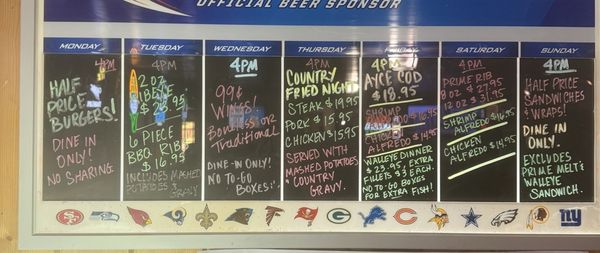 OFFICIAL BEER SPONSOR
MONDAY
4PM
HALF
PRICE
BURGERS!
DINE IN
ONLY!
NO SHARING.
TUESDAY
4PM
$26.95
6 PIECE
BBQ RIBS
$16.95
INCLUDES MASHED
POTATOES & GRAVY
WEDNESDAY
4PM
99¢
WINGS!
BONELESS OR
TRADITIONAL
DINE-IN ONLY!
NO TO-GO
BOXES!
THURSDAY
4PM
COUNTRY
FRIED NIGHT
STEAK $19.95
PORK $15.95
CHICKEN $15.95
SERVED WITH
MASHED POTATOES
& COUNTRY
GRAVY.
FRIDAY
4PM
AYCE COD
$18.95
SHRIMP
ALFREDO $16.95
CHICKEN
ALFREDO $14.95
WALLEYE DINNER
$23.95, EXTRA
FILLETS $3 EACH
NO TO-GO BOXES
FOR EXTRA FISH!
SATURDAY
4PM
PRIME RIB
8OZ $27.95
12 OZ $31.95
SHRIMP
ALFREDO $16.95
CHICKEN
ALFREDO $14.95
SUNDAY
4PM
HALF PRICE
SANDWICHES
& WRAPS!
DINE IN
ONLY.
EXCLUDES
PRIME MELT &
WALLEYE
SANDWICH.